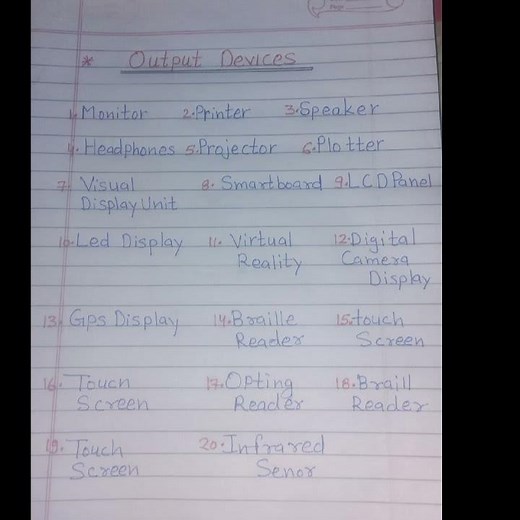 * Output Devices
1. Monitor 2. Printer 3. Speaker
4. Headphones 5. Projector 6. Plotter
7. Visual Display Unit 8. Smartboard 9. LCD Panel
10. Led Display 11. Virtual Reality 12. Digital Camera Display
13. Gps Display 14. Braille Reader 15. touch Screen
16. Touch Screen 17. Opting Reader 18. Braill Reader
19. Touch Screen 20. Infrared Senor